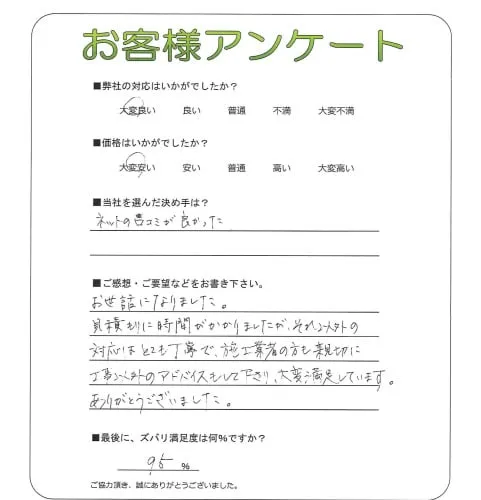 お客様アンケート
■弊社の対応はいかがでしたか？
大変良い 良い 普通 不満 大変不満
■価格はいかがでしたか？
大変安い 安い 普通 高い 大変高い
■当社を選んだ決め手は？
ネットの口コミが良かった
■ご感想・ご要望などをお書き下さい。
お世話になりました。
見積もりに時間がかかりましたが、それ以外の
対応はとても丁寧で、施工業者の方も親切に
工事以外のアドバイスもして下さり、大変満足しています。
ありがとうございました。
■最後に、ズバリ満足度は何%ですか？
95 %
ご協力頂き、誠にありがとうございました。